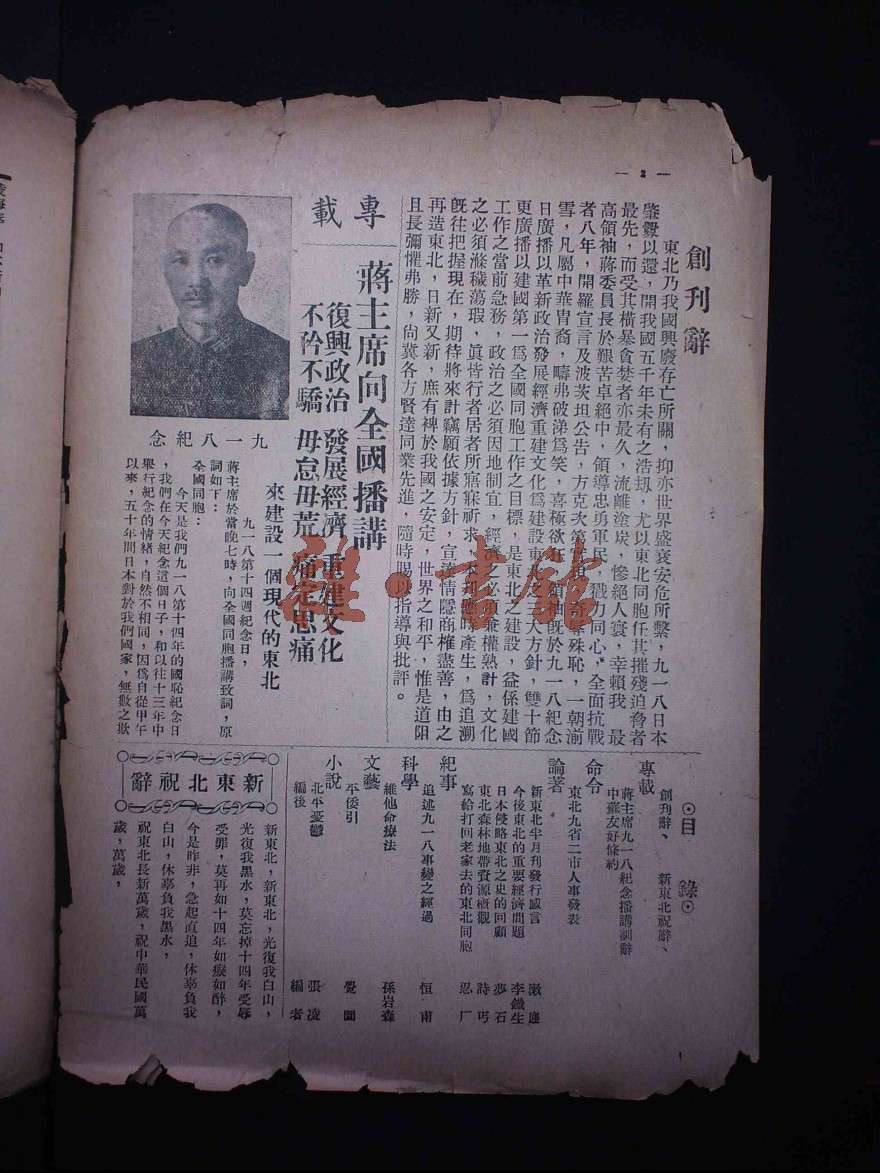 — 2 —
創刊辭
東北乃我國興廢存亡所關，抑亦世界盛衰安危所繫，九一八日本
肇釁以還，開我國五千年未有之浩劫，尤以東北同胞任其摧殘迫脅者
最先，而受其橫暴貪婪者亦最久，流離塗炭，慘絕人寰，幸賴我　最
高領袖蔣委員長於艱苦卓絕中，領導忠勇軍民，戮力同心，全面抗戰
者八年，開羅宣言及波茨坦公告，方克次第實現，奇辱殊恥，一朝湔
雪，凡屬中華胄裔，疇弗破涕爲笑，喜極欲狂，領袖旣於九一八紀念
日廣播以革新政治發展經濟重建文化爲建設東北之三大方針，雙十節
更廣播以建國第一爲全國同胞工作之目標，是東北之建設，益係建國
工作之當前急務，政治之必須因地制宜，經濟之必須兼權熟計，文化
之必須滌穢蕩瑕，眞皆行者居者所寤寐祈求，本刊應時產生，爲追溯
旣往把握現在，期待將來計竊願依據方針，宣達情隱商榷盡善，由之
再造東北，日新又新，庶有裨於我國之安定，世界之和平，惟是道阻
且長彌懼弗勝，尙冀各方賢達同業先進，隨時賜以指導與批評。
專載
蔣主席向全國播講
復興政治　發展經濟　重建文化
不矜不驕　毋怠毋荒　痛定思痛
來建設一個現代的東北
九一八紀念
九一八第十四週紀念日，
蔣主席於當晚七時，向全國同胞播講致詞，原
詞如下：
全國同胞：
今天是我們九一八第十四年的國恥紀念日
，我們在今天紀念這個日子，和以往十三年中
舉行紀念的情緒，自然不相同，因爲自從甲午
以來，五十年間日本對於我們國家，無數之欺
⊙目　錄⊙
專載
創刊辭、　新東北祝辭、
蔣主席九一八紀念播講訓辭
中蘇友好條約
命令
東北九省二市人事發表
論著
新東北半月刊發行感言　澈塵
今後東北的重要經濟問題　李鐵生
日本侵略東北之史的回顧　夢石
東北森林地帶資源槪觀　詩丐
寫給打回老家去的東北同胞　忍厂
紀事
追述九一八事變之經過　恒甫
科學
維他命療法　孫岩森
文藝
平倭引　覺園
小說
北平憂鬱　張凌
編後　編者
新東北祝辭
新東北，新東北，光復我白山，
光復我黑水，莫忘掉十四年受辱
受罪，莫再如十四年如癡如醉，
今是昨非，急起直追，休辜負我
白山，休辜負我黑水，
祝東北長新萬歲，祝中華民國萬
歲，萬歲，
雜·書館